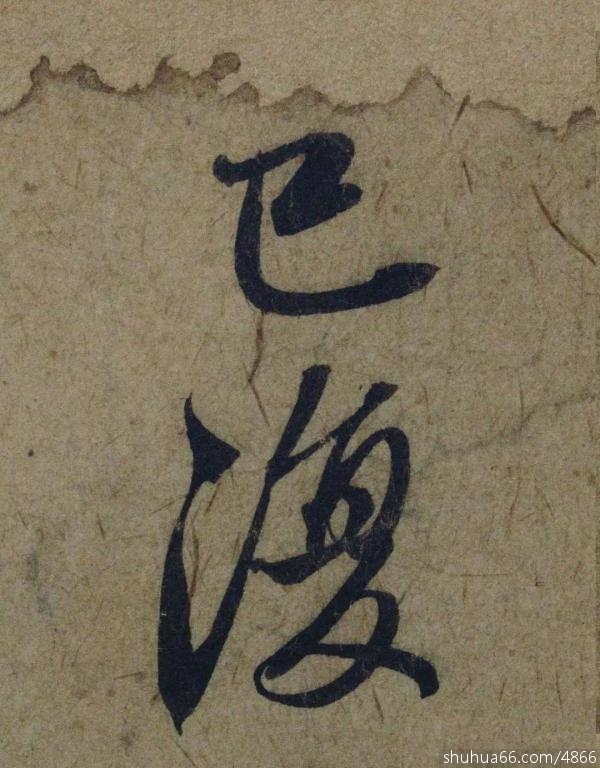 已復
shuhua66.com/4866